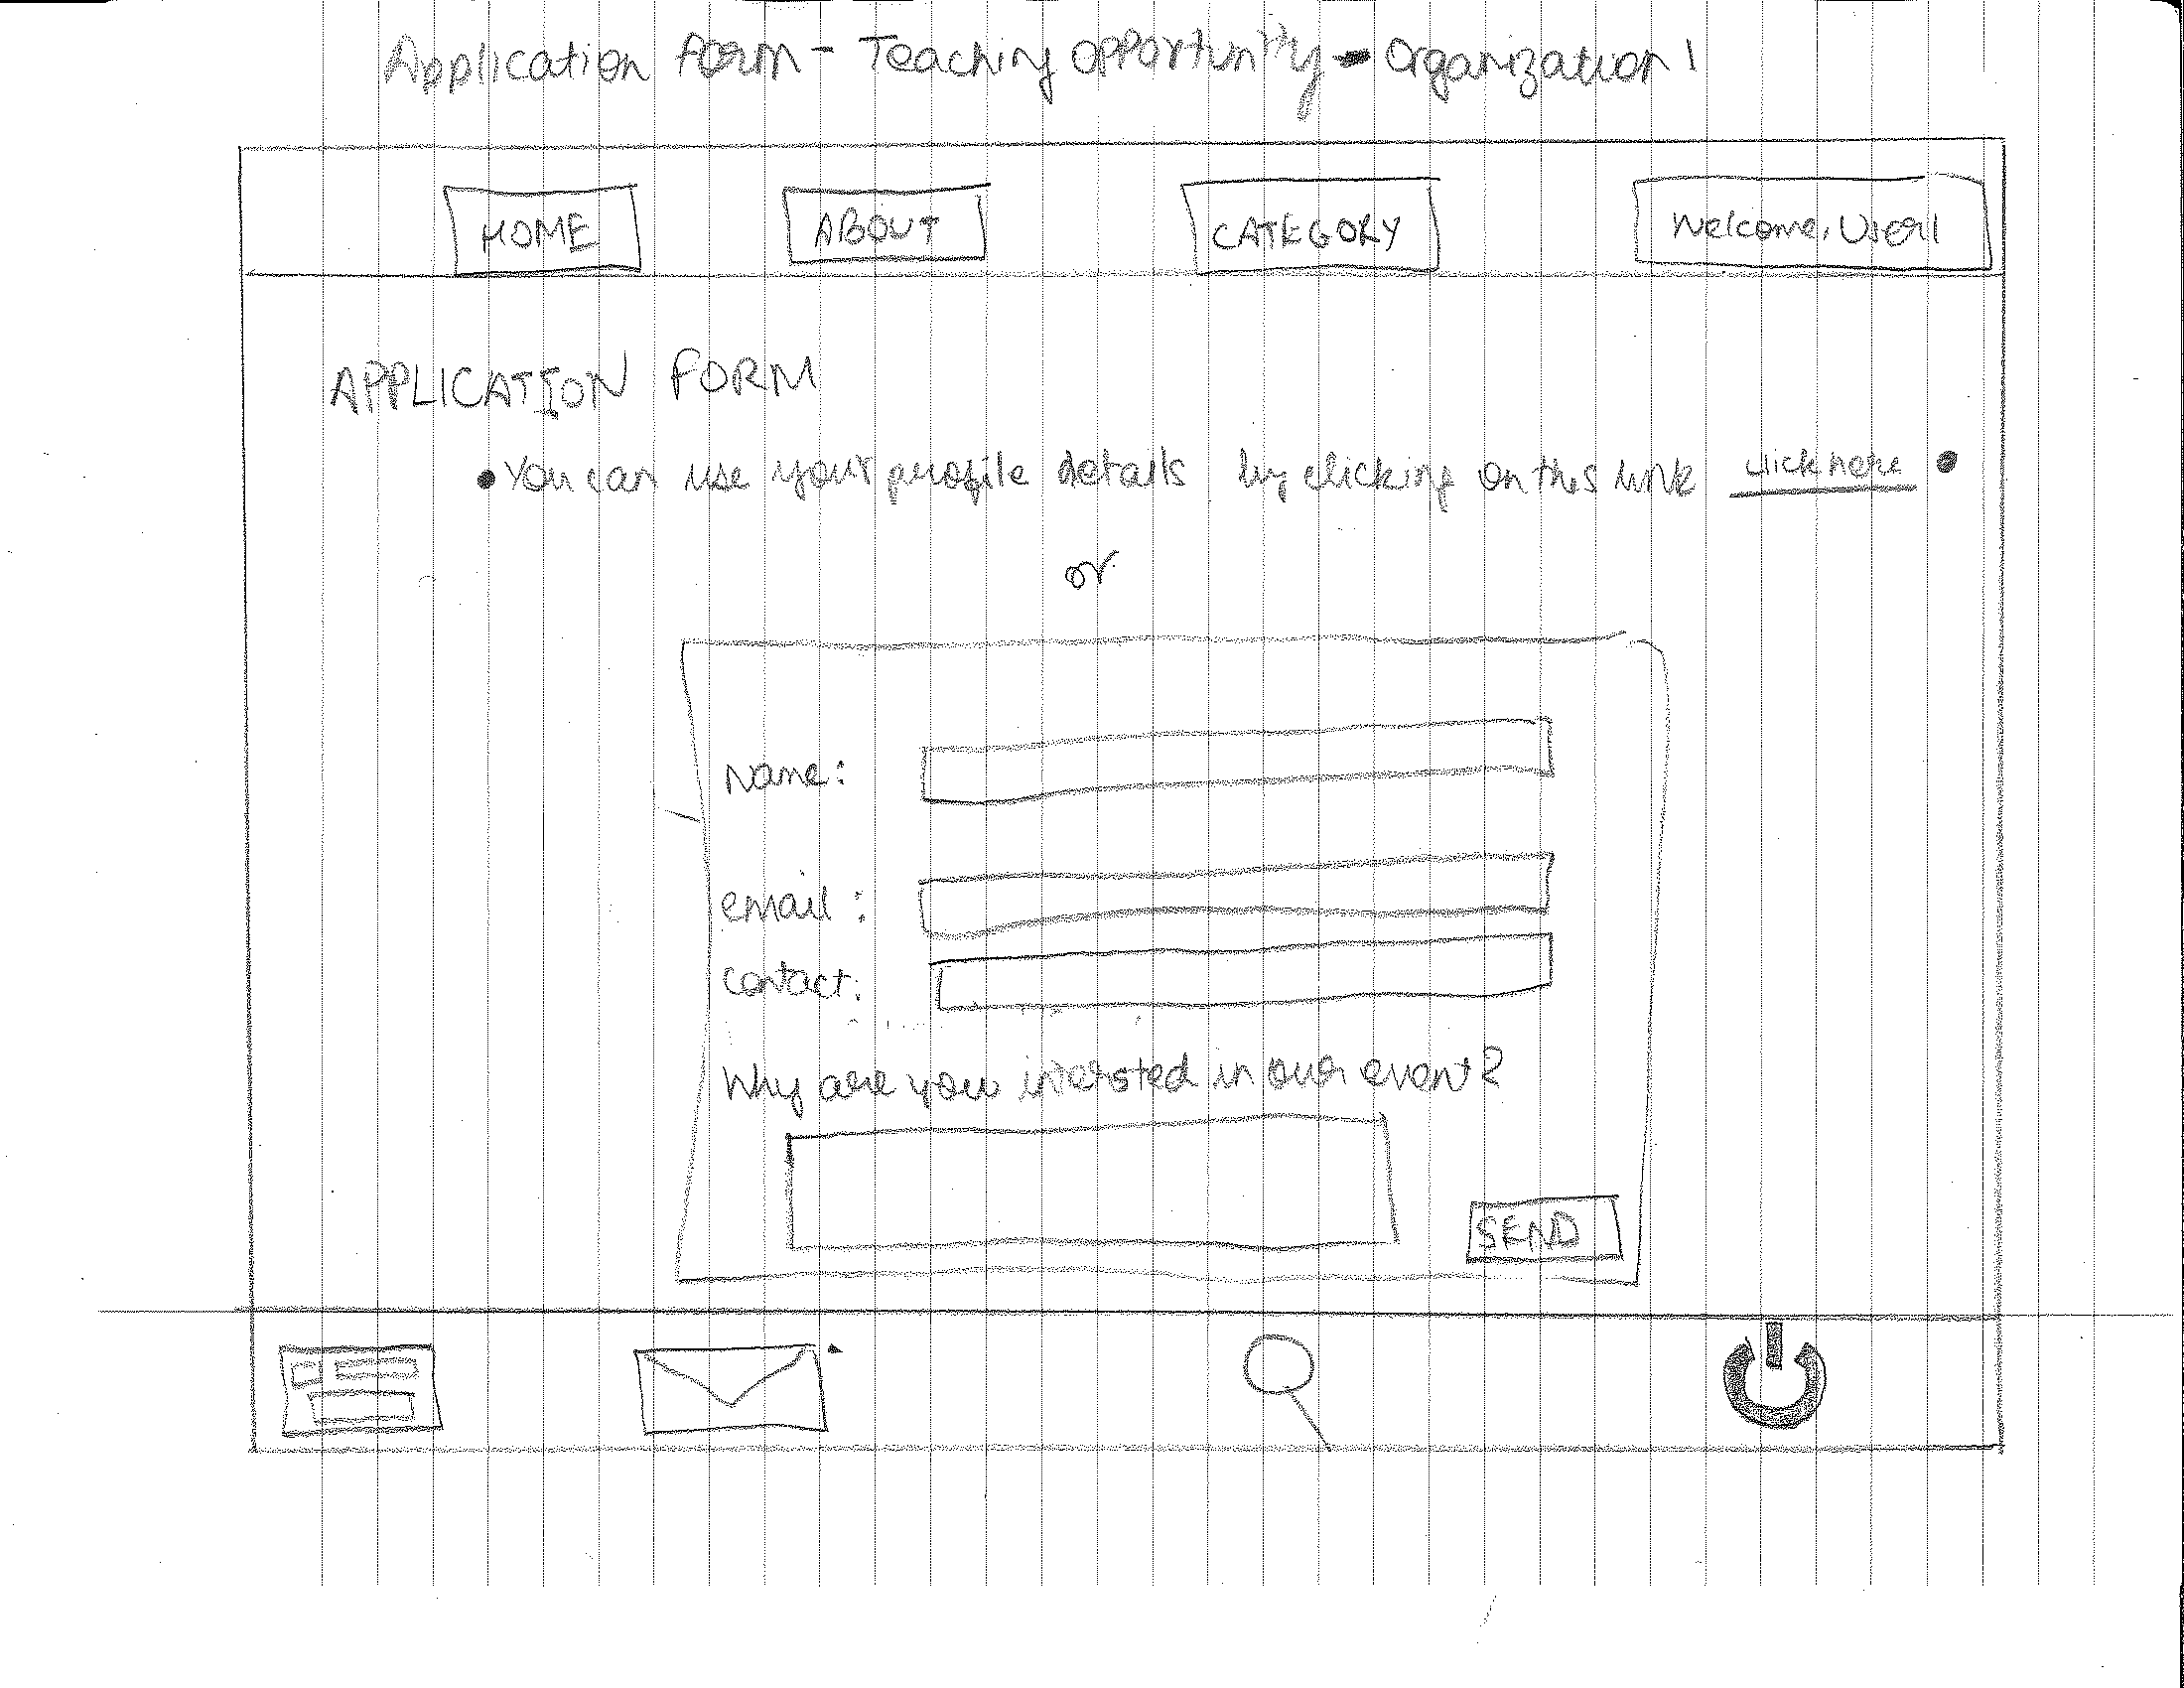 Application Form - Teaching opportunity - Organization 1
HOME ABOUT CATEGORY Welcome, User1
APPLICATION FORM
• You can use your profile details by clicking on this link click here •
or
Name:
email :
contact:
Why are you intersted in our event?
SEND